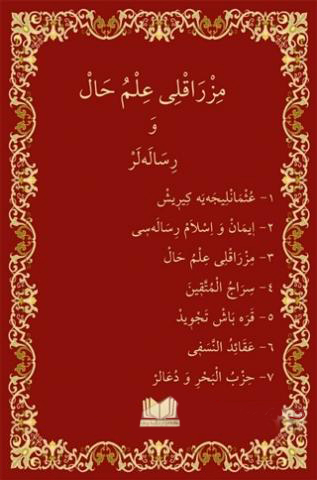 مِزْرَاقْلِى عِلْمُ حَالْ
وَ
رِسَالَەلَرْ
١- عُثْمَانْلِيجَەيَە كِيرِيشْ
٢- اِيمَانْ وَ اِسْلَامْ رِسَالَەسِى
٣- مِزْرَاقْلِى عِلْمُ حَالْ
٤- سِرَاجُ الْمُتَّقِينَ
٥- قَرَە بَاشْ تَجْوِيدْ
٦- عَقَائِدُ النَّسَفِى
٧- حِزْبُ الْبَحْرِ وَ دُعَالَرْ